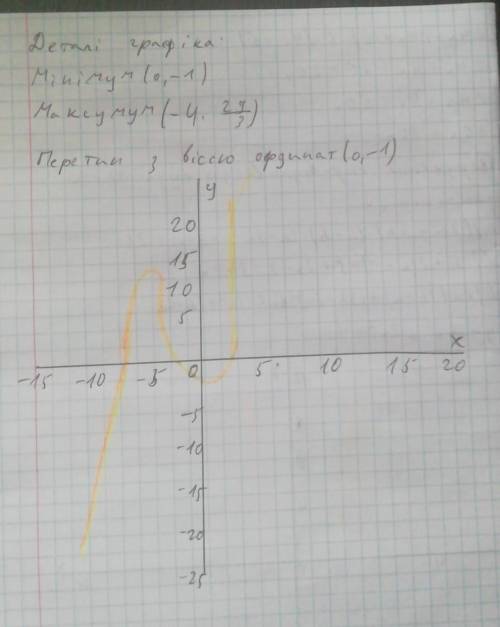 Деталі графіка:
Мінімум (0,-1)
Максимум (-4, 29/3)
Перетин з віссю ординат (0,-1)
y
20
15
10
5
x
-15 -10 -5 0 5 10 15 20
-5
-10
-15
-20
-25